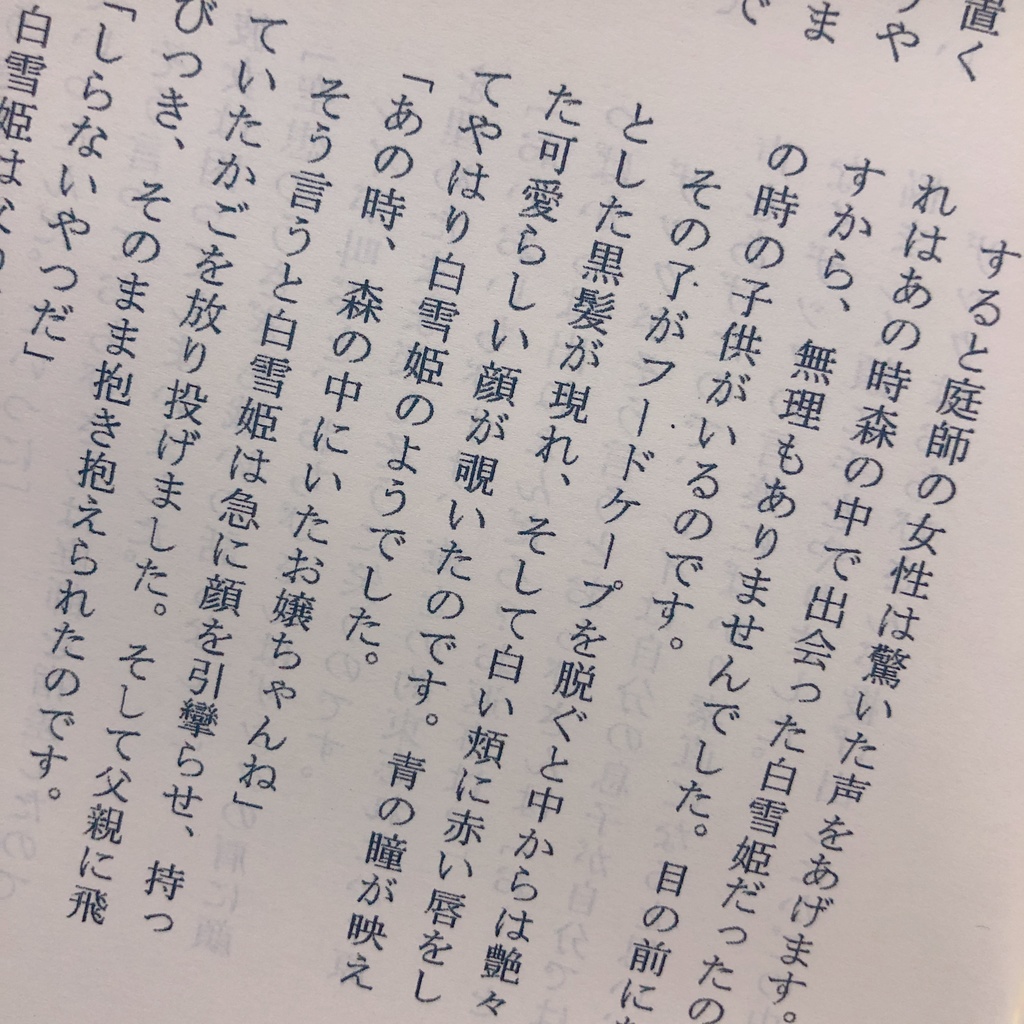 置く
うや
ま
で
すると庭師の女性は驚いた声をあげます。
れはあの時森の中で出会った白雪姫だったの
すから、無理もありませんでした。目の前に
の時の子供がいるのです。
その了がフードケープを脱ぐと中からは艶々
とした黒髪が現れ、そして白い頬に赤い唇をし
た可愛らしい顔が覗いたのです。青の瞳が映え
てやはり白雪姫のようでした。
「あの時、森の中にいたお嬢ちゃんね」
そう言うと白雪姫は急に顔を引攣らせ、持っ
ていたかごを放り投げました。そして父親に飛
びつき、そのまま抱き抱えられたのです。
「しらないやつだ」
白雪姫は